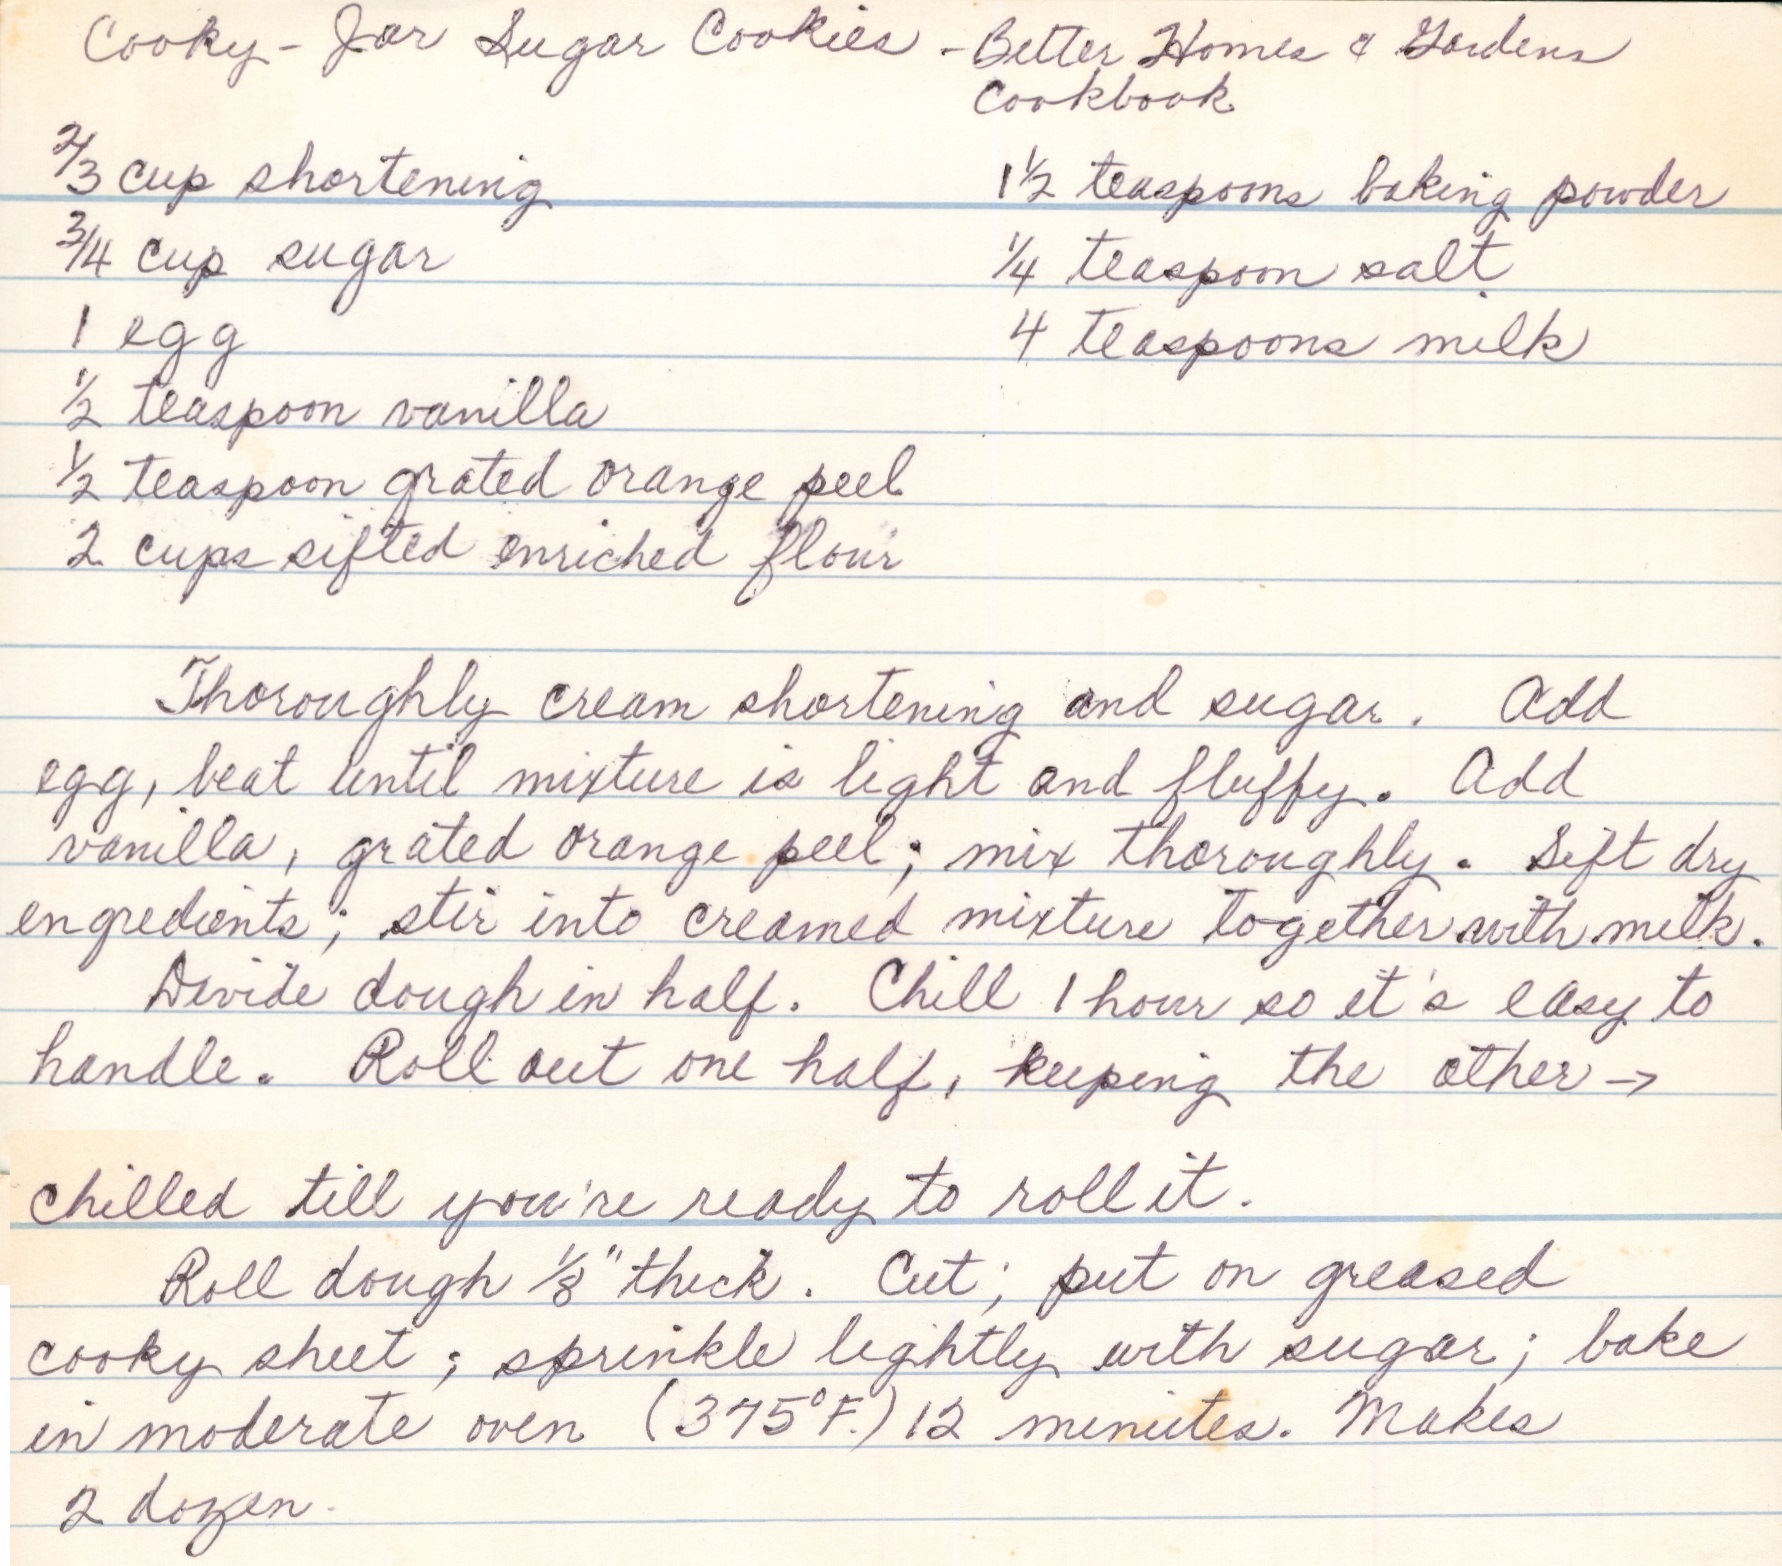 Cooky-Jar Sugar Cookies - Better Homes & Gardens
Cookbook
2/3 cup shortening
3/4 cup sugar
1 egg
1/2 teaspoon vanilla
1/2 teaspoon grated orange peel
2 cups sifted enriched flour
1 1/2 teaspoons baking powder
1/4 teaspoon salt
4 teaspoons milk
Thoroughly cream shortening and sugar. Add
egg, beat until mixture is light and fluffy. Add
vanilla, grated orange peel; mix thoroughly. Sift dry
engredients; stir into creamed mixture together with milk.
Divide dough in half. Chill 1 hour so it's easy to
handle. Roll out one half, keeping the other →
chilled till you're ready to roll it.
Roll dough 1/8" thick. Cut; put on greased
cooky sheet; sprinkle lightly with sugar; bake
in moderate oven (375°F.) 12 minutes. Makes
2 dozen.